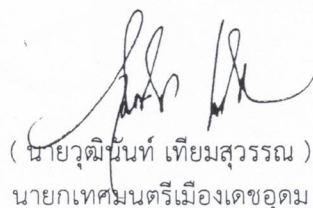 ( นายวุฒินันท์ เทียมสุวรรณ )
นายกเทศมนตรีเมืองเดชอุดม